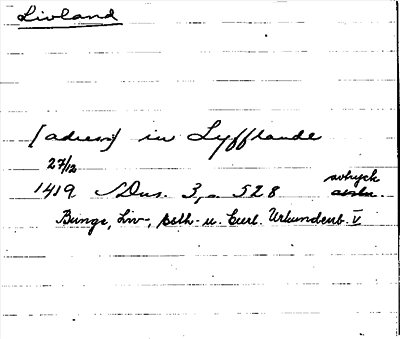 Livland
[adress] in Lyfflande
27/12
1419 SDns. 3, s. 528 avtryck
Bunge, Liv-, Esth- u. Curl. Urkundenb. V